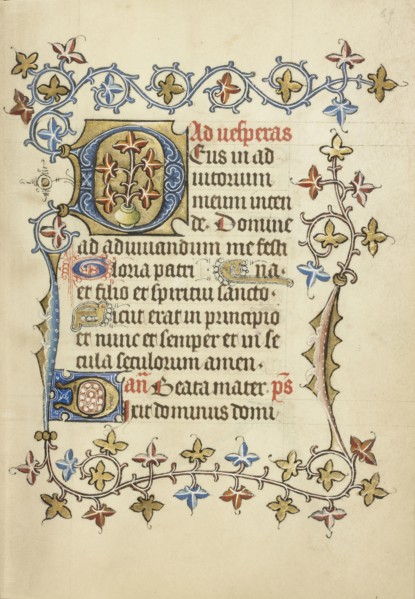 Ad vesperas
Deus in ad
iutorium
meum inten
de. Domine
ad adiuuandum me festi
Gloria patri na.
et filio et spiritui sancto.
Sicut erat in principio
et nunc et semper et in se
cula seculorum amen.
an̄ Beata mater. ps̄
Dixit dominus domi